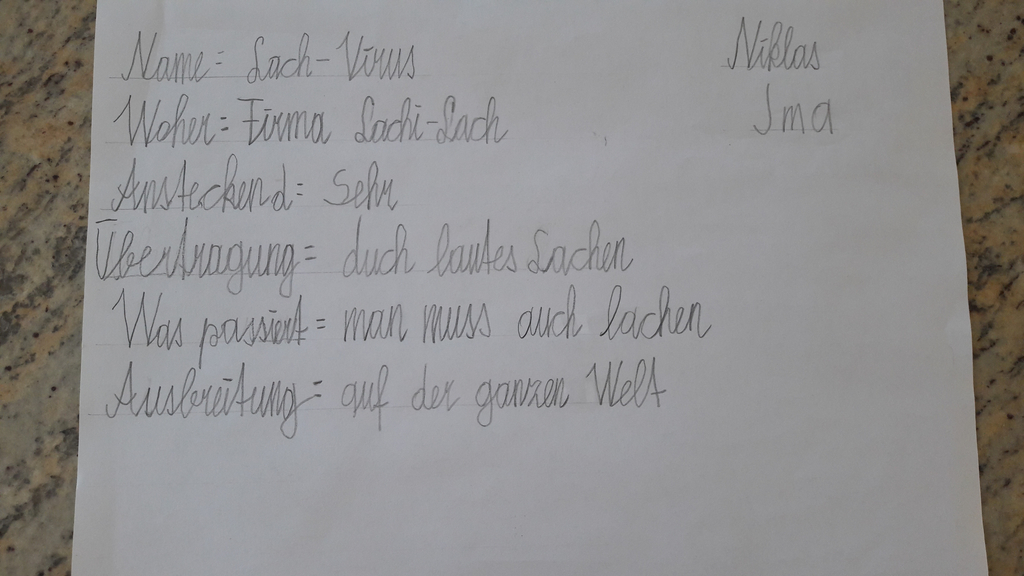 Name = Lach-Virus
Niklas
Woher = Firma Lachi-Lach
Jma
Ansteckend = Sehr
Übertragung = duch lautes Lachen
Was passiert = man muss auch lachen
Ausbreitung = auf der ganzen Welt